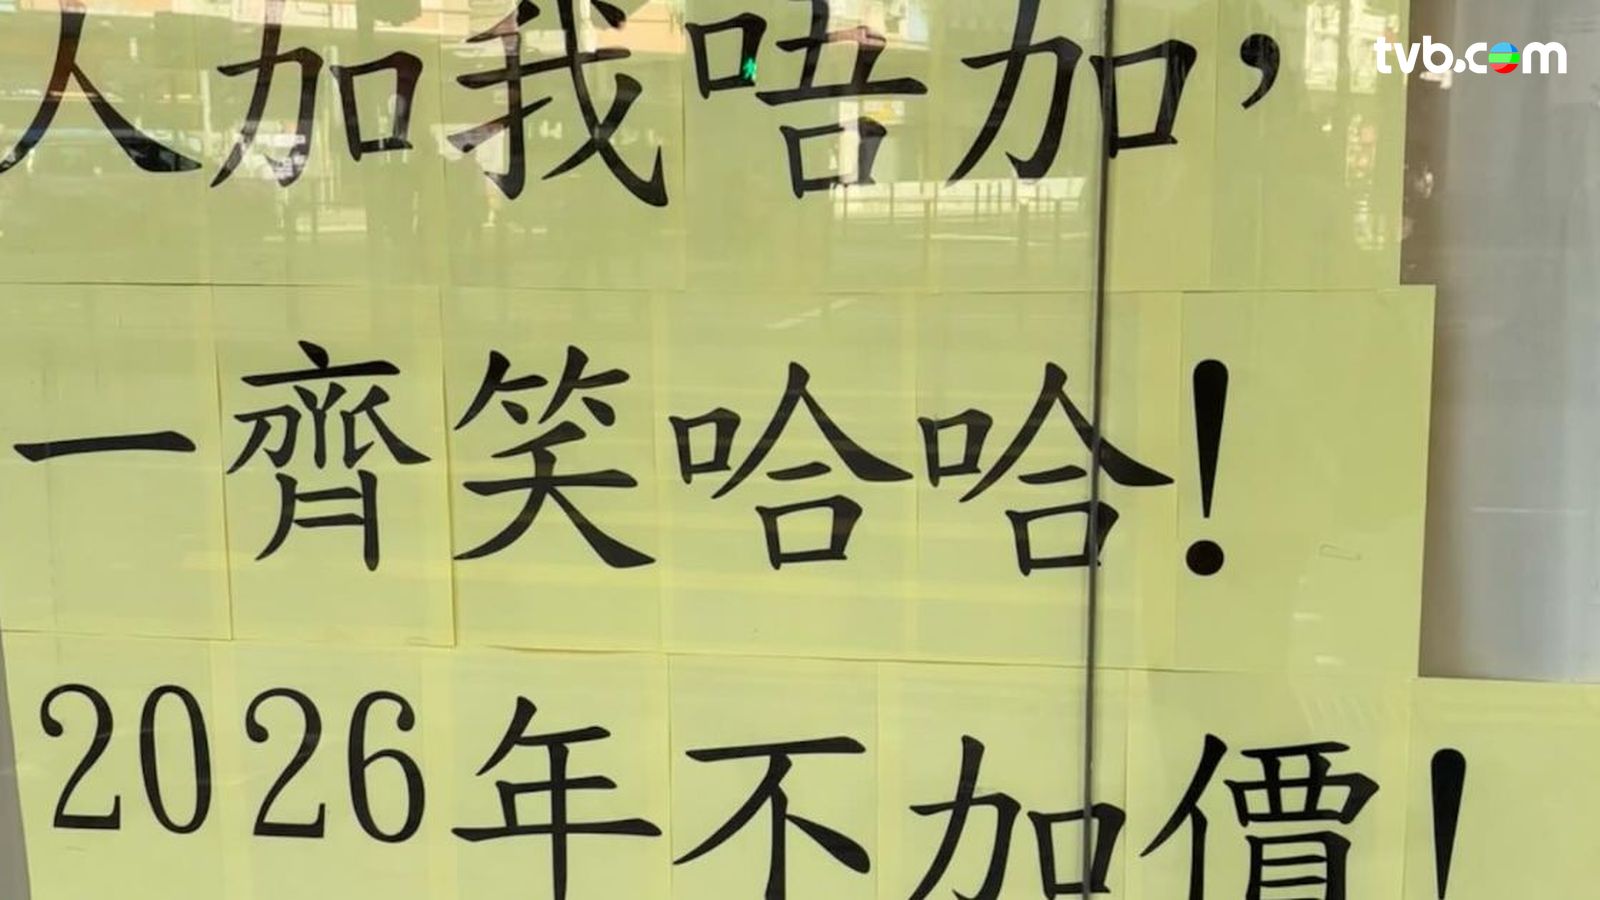 tvb.com
人加我唔加，
一齊笑哈哈！
2026年不加價！